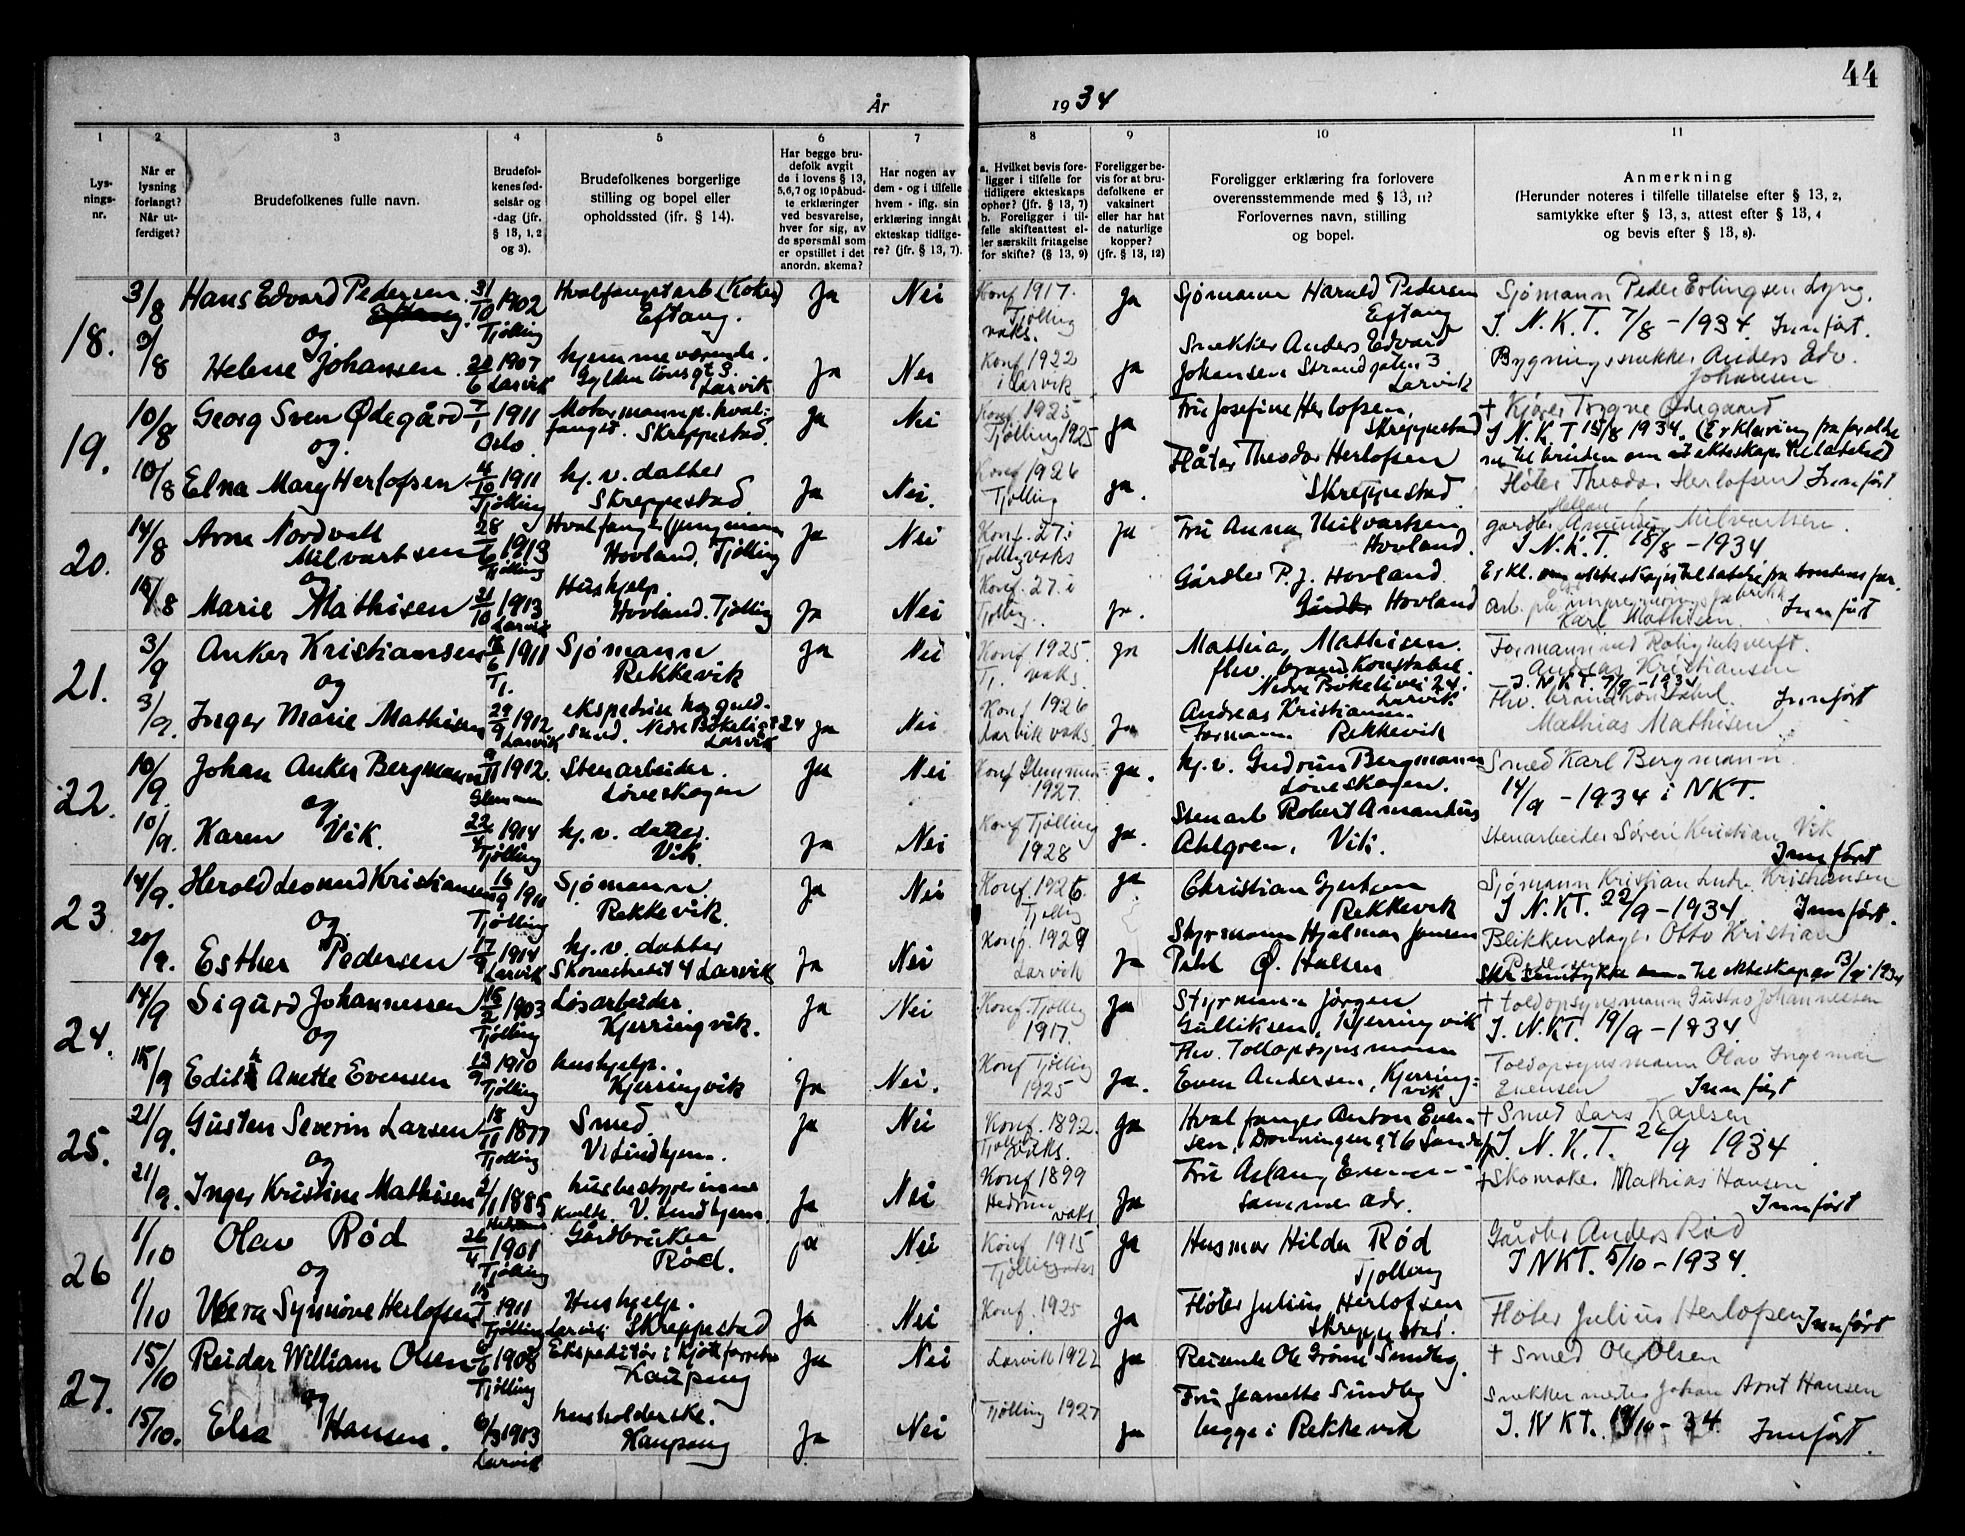 44
År 1934
1 2 3 4 5 6 7 8 9 10 11
Lys-
nings-
nr.
Når er
lysning
forlangt?
Når ut-
ferdiget?
Brudefolkenes fulle navn.
Brudefol-
kenes fød-
selsår og
-dag (jfr.
§ 13, 1, 2
og 3).
Brudefolkenes borgerlige
stilling og bopel eller
opholdssted (jfr. § 14).
Har begge bru-
defolk avgit
de i lovens § 13,
5,6,7 og 10 påbud-
te erklæringer
ved besvarelse,
hver for sig, av
de spørsmål som
er opstillet i det
anordn. skema?
Har nogen av
dem - og i tilfelle
hvem - iflg. sin
erklæring inngått
ekteskap tidlige-
re? (jfr. § 13, 7).
a. Hvilket bevis fore-
ligger i tilfelle for
tidligere ekteskaps
ophør? (jfr. § 13, 7)
b. Foreligger i til-
felle skifteattest el-
ler særskilt fritagelse
for skifte? (§ 13, 9)
Foreligger be-
vis for at bru-
defolkene er
vaksinert
eller har hat
de naturlige
kopper?
(jfr. § 13, 12)
Foreligger erklæring fra forlovere
overensstemmende med § 13, 11?
Forlovernes navn, stilling
og bopel.
Anmerkning
(Herunder noteres i tilfelle tillatelse efter § 13, 2,
samtykke efter § 13, 3, attest efter § 13, 4
og bevis efter § 13, 8).
18.
3/8 Hans Edvard Pedersen 31/10 1902 Hvalfangstarb (Koker) Ja Nei Konf 1917. Ja Sjømann Harald Pedersen Sjømann Peder Erlingsen Lyng.
Tjølling Eftang. Tjølling vaks. Eftang I. N.K.T. 7/8 - 1934. Innført.
og
3/8 Helene Johansen 1907 hjemmeværende. Ja Nei Konf 1922 Ja Snekker Anders Edvard Bygningssnekker Anders Edv.
Larvik Gyldenløvsgt 3. Larvik i Larvik Johansen Strandgaten 3 Larvik Johansen
19.
10/8 Georg Sven Ødegård 7/1 1911 Motormann p. hval- Ja Nei Konf 1925 Ja Fru Josefine Herlofsen, † Kjører Trygve Ødegaard
Oslo. fangst. Skreppestad. Tjølling 1925 Skreppestad I N.K.T 15/8 1934. (Erklæring fra foreldre
og
10/8 Elna Mary Herlofsen 4/10 1911 hj. v. datter Ja Nei. Konf 1926 ja. Fløter Theodor Herlofsen ne til bruden om ekteskapstillatelse)
Tjølling Skreppestad Tjølling Skreppestad. Fløter Theodor Herlofsen Innført
20.
14/8 Arne Nordvall 28/6 1913 Hvalfanger (jungmann Ja Nei Konf. 27 i Ja Fru Anna Milvartsen gardbr Amund Milvartsen.
Milvartsen Tjølling Hovland, Tjølling Tjølling vaks Hovland. I N.K.T. 18/8 - 1934
og
Marie Mathisen 21/10 1913 Hushjelp Ja Nei Konf. 27 i Ja. Gårdbr P. J. Hovland
Larvik Hovland. Tjølling Tjølling. Hovland Karl Mathisen. Innført
21.
3/9 Anker Kristiansen 1911 Sjømann Ja Nei Konf 1925. Ja Mathias Mathisen Formann ved
Tj. Rekkevik Tj. vaks. flw. brandkonstabel. Andreas Kristiansen
og Nedre Bøkelivei 24. Larvik. I. N.K.T. 7/9 - 1934
3/9. Inger Marie Mathisen 29/9 1912 ekspedrise hos guld- Ja Nei Konf 1926 Ja Andreas Kristiansen. Flw. brandkonstabel Innført
Larvik smed. Nedre Bøkeligt 24 Larvik Larvik vaks. Formann. Rekkevik Mathias Mathisen
22.
10/9. Johan Anker Bergmann 9/11 1912. Stenarbeider. Ja Nei Konf Glemmen Ja. hj. v. Gudrun Bergmann Smed Karl Bergmann
Glemmen Løveskogen 1927. Løveskogen. 14/9 - 1934 i NKT.
og
10/9. Karen Vik. 22/4 1914 hj. v. datter. Ja Nei Konf Tjølling Ja. Stenarb Robert Amandus Stenarbeider Søren Kristian Vik
Tjølling Vik. 1928 Ahlgren, Vik. Innført
23
14/9. Herold Leonard Kristiansen 16/9 1911 Sjømann Ja Nei Konf. 1926 ja Christian Gjertsen Sjømann Kristian Ludv. Kristiansen
Tjølling Rekkevik. Tjølling Rekkevik I N.K.T. 22/9 - 1934. Innført.
og
20/9. Esther Pedersen 17/9 1914 hj. v. datter Ja Nei Konf. 1929 Ja Styrmann Hjalmar Jansen Blikkenslager Otto Kristian
Larvik 4 Larvik Larvik Ø. Halsen Pedersen samtykke til ekteskap av 13/9 1934
24.
14/9 Sigurd Johannessen 16/2 1903 Løsarbeider. Ja Nei Konf. Tjølling Ja Styrmann Jørgen † toldopsynsmann Gustav Johannessen
Tjølling Kjerringvik. 1917. Gulliksen, Kjerringvik I. N.K.T. 19/9 - 1934.
og
15/9 Edith Anette Evensen 13/9 1910 hushjelp. Ja Nei. Konf Tjølling Ja. Flw. Tollopsynsmann Toldopsynsmann Olav Ingemar
Tjølling Kjerringvik 1925 Even Andersen, Kjerring-
vik Evensen Innført
25.
21/9. Gusten Severin Larsen 18/11 1877 Smed Ja Nei Konf. 1892. Ja Hvalfanger Anton Even- † Smed Lars Karlsen
Tjølling V. Lindhjem. Tjølling vaks. sen, Dronningensgt 6 Sandefj. I. N.K.T. 26/9 1934
og
21/9. Inger Kristine Mathisen 2/1 1885 husbestyrerinne Ja Nei Konf 1899 Ja Fru Aslaug Evensen † Skomaker Mathias Hansen
Hedrum V. Lindhjem. Hedrum vaks samme adr. Innført
26
1/10 Olav Rød 26/4 1901 Gårdbruker ja Nei Konf. 1915 Ja Husmor Hilda Rød Gårdbr Anders Rød
Tjølling Rød. Tjølling vaks Tjølling I NKT. 5/10 - 1934.
og
1/10 Vera Synnøve Herlofsen 1911 Hushjelp. Ja Nei Konf. 1925 Ja Fløter Julius Herlofsen Fløter Julius Herlofsen Innført
Tjølling Larvik Skreppestad Skreppestad.
27.
15/10 Reidar William Olsen 1908 Ekspeditør i kjøttforretn Ja Nei Larvik 1922 Ja Reisende Ole Grønn Sundby † Smed Ole Olsen
Tjølling Kaupang
og Fru Jeanette Sundby Snekkermester Johan Arnt Hansen
15/10. Elsa Hansen. 1913 husholderske. Ja Nei Tjølling 1927 Ja begge i Rekkevik I. N KT. 19/10 - 34. Innført.
Larvik Kaupang